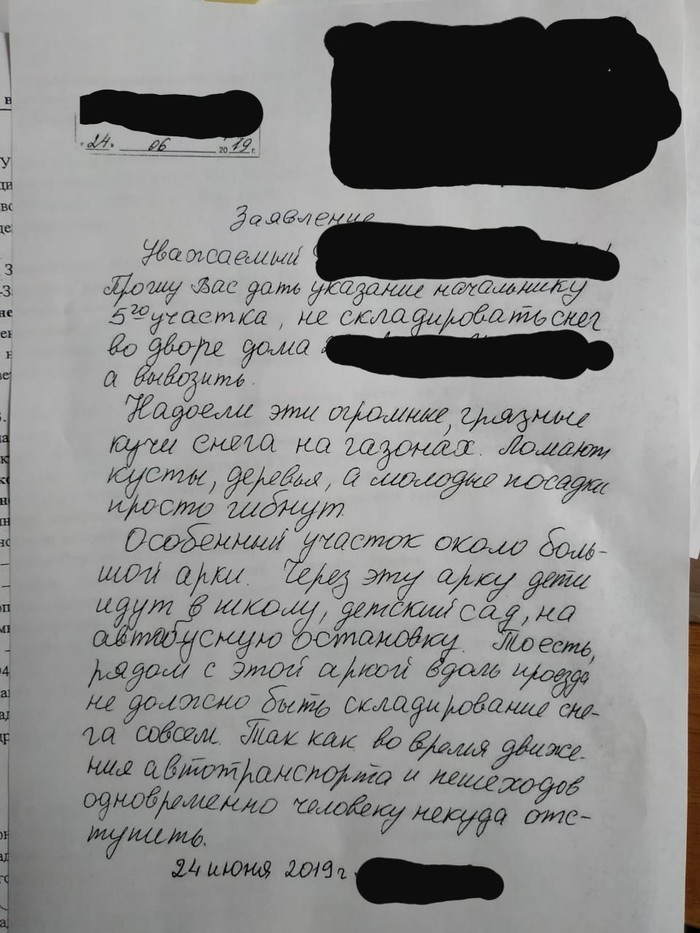 "24" 06 2019 г.
Заявление
Уважаемый
Прошу Вас дать указание начальнику
5го участка, не складировать снег
во дворе дома
а вывозить.
Надоели эти огромные, грязные
кучи снега на газонах. Ломают
кусты, деревья, а молодые посадки
просто гибнут.
Особенный участок около боль-
шой арки. Через эту арку дети
идут в школу, детский сад, на
автобусную остановку. То есть,
рядом с этой аркой вдоль проезда
не должно быть складирование сне-
га совсем. Так как во время движе-
ния автотранспорта и пешеходов
одновременно человеку некуда отс-
тупить.
24 июня 2019 г